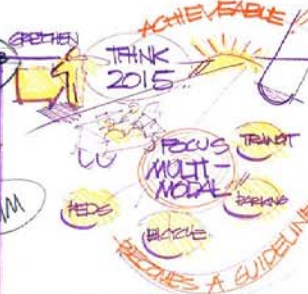 GRETCHEN
ACHIEVEABLE!
THINK
2015..
FOCUS
MULTI-
MODAL
TRANSIT
PARKING
BICYCLE
PEDS
BECOMES A GUIDELINE